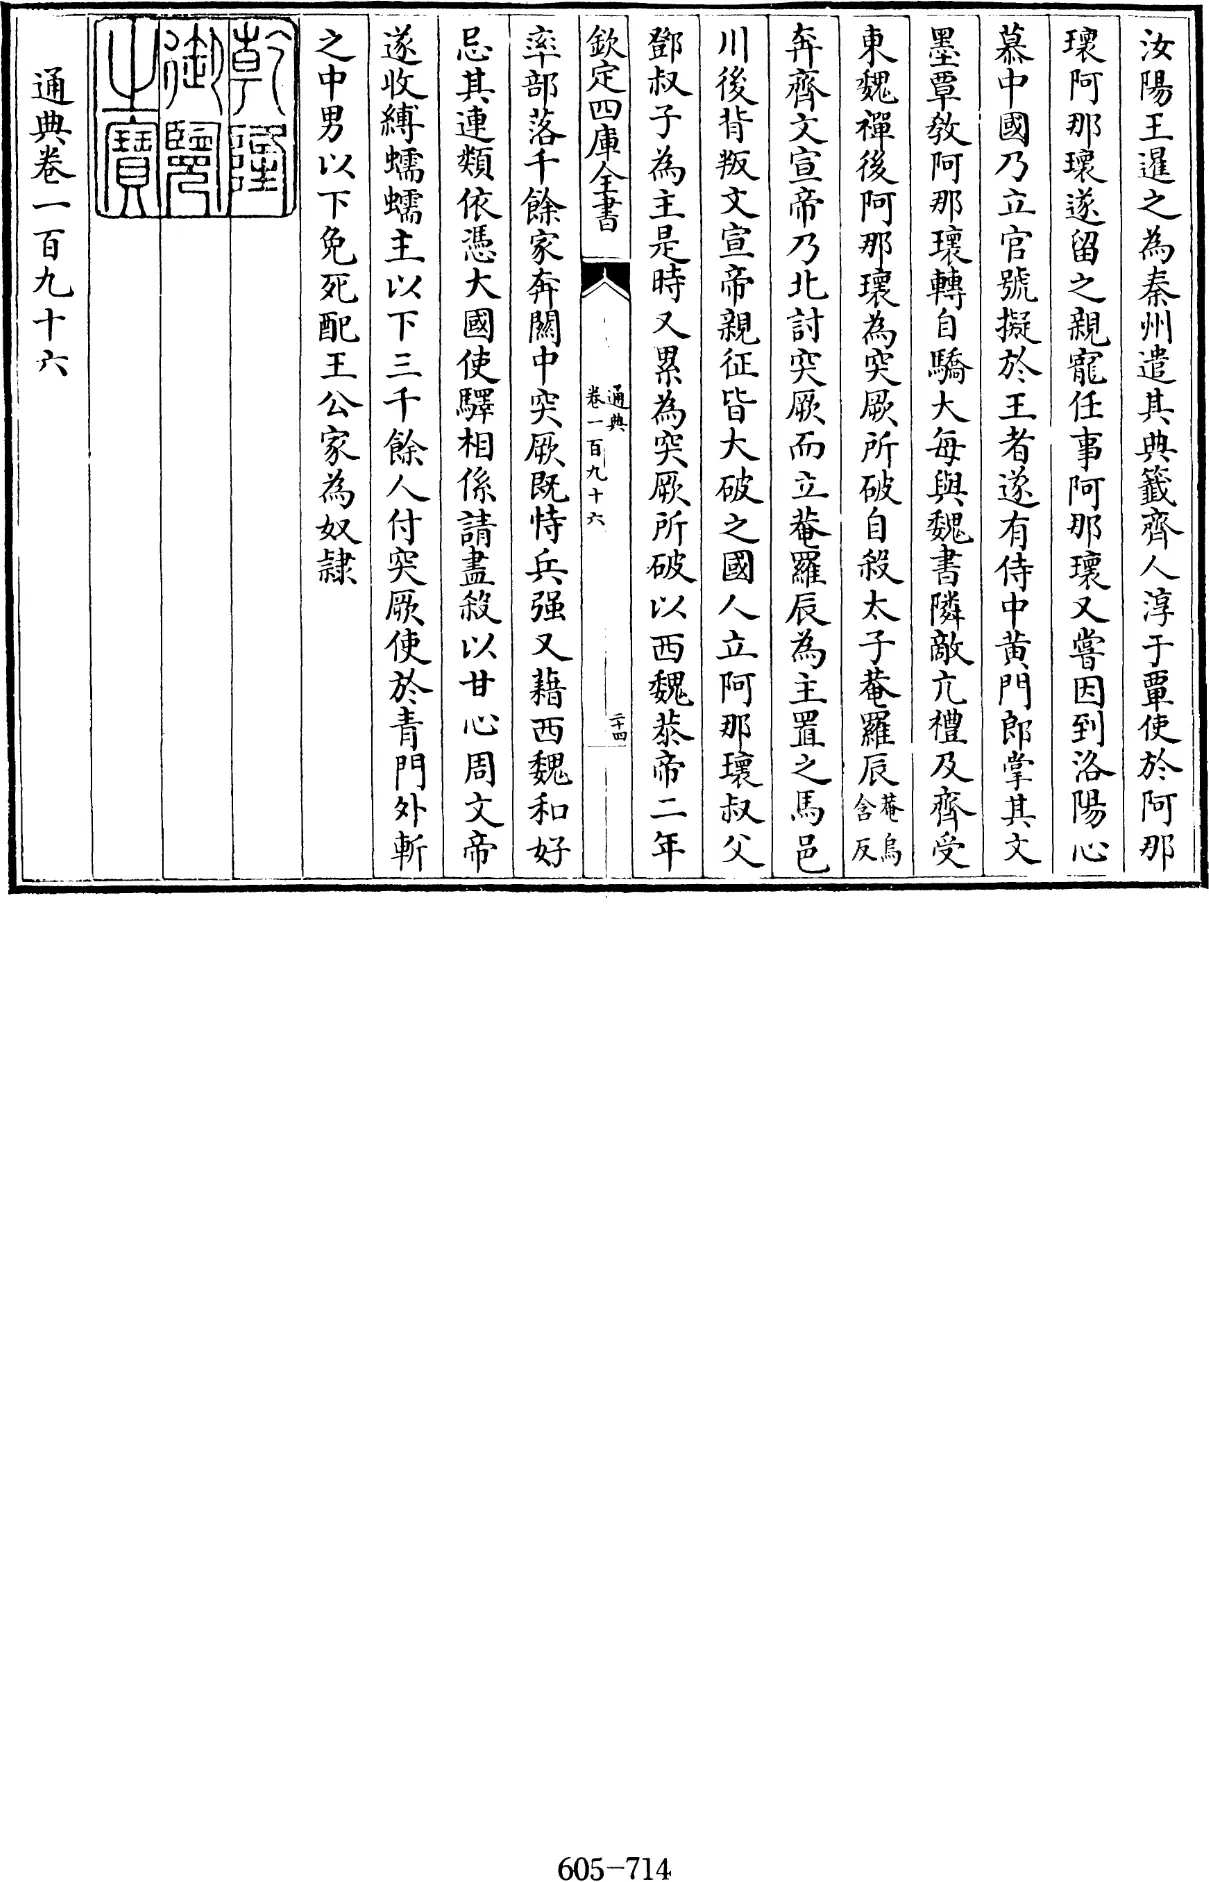 汝陽王暹之為秦州遣其典籖齊人淳于覃使於阿那
瓌阿那瓌遂留之親寵任事阿那瓌又嘗因到洛陽心
慕中國乃立官號擬於王者遂有侍中黄門郎掌其文
墨覃教阿那瓌轉自驕大每與魏書隣敵亢禮及齊受
東魏禪後阿那瓌為突厥所破自殺太子菴羅辰菴烏含反
奔齊文宣帝乃北討突厥而立菴羅辰為主置之馬邑
川後背叛文宣帝親征皆大破之國人立阿那瓌叔父
鄧叔子為主是時又累為突厥所破以西魏恭帝二年
欽定四庫全書
通典
卷一百九十六
二十四
率部落千餘家奔關中突厥既恃兵强又藉西魏和好
忌其連類依憑大國使驛相係請盡殺以甘心周文帝
遂收縛蠕蠕主以下三千餘人付突厥使於青門外斬
之中男以下免死配王公家為奴隷
乾隆
御覽
之寶
通典卷一百九十六
605-714